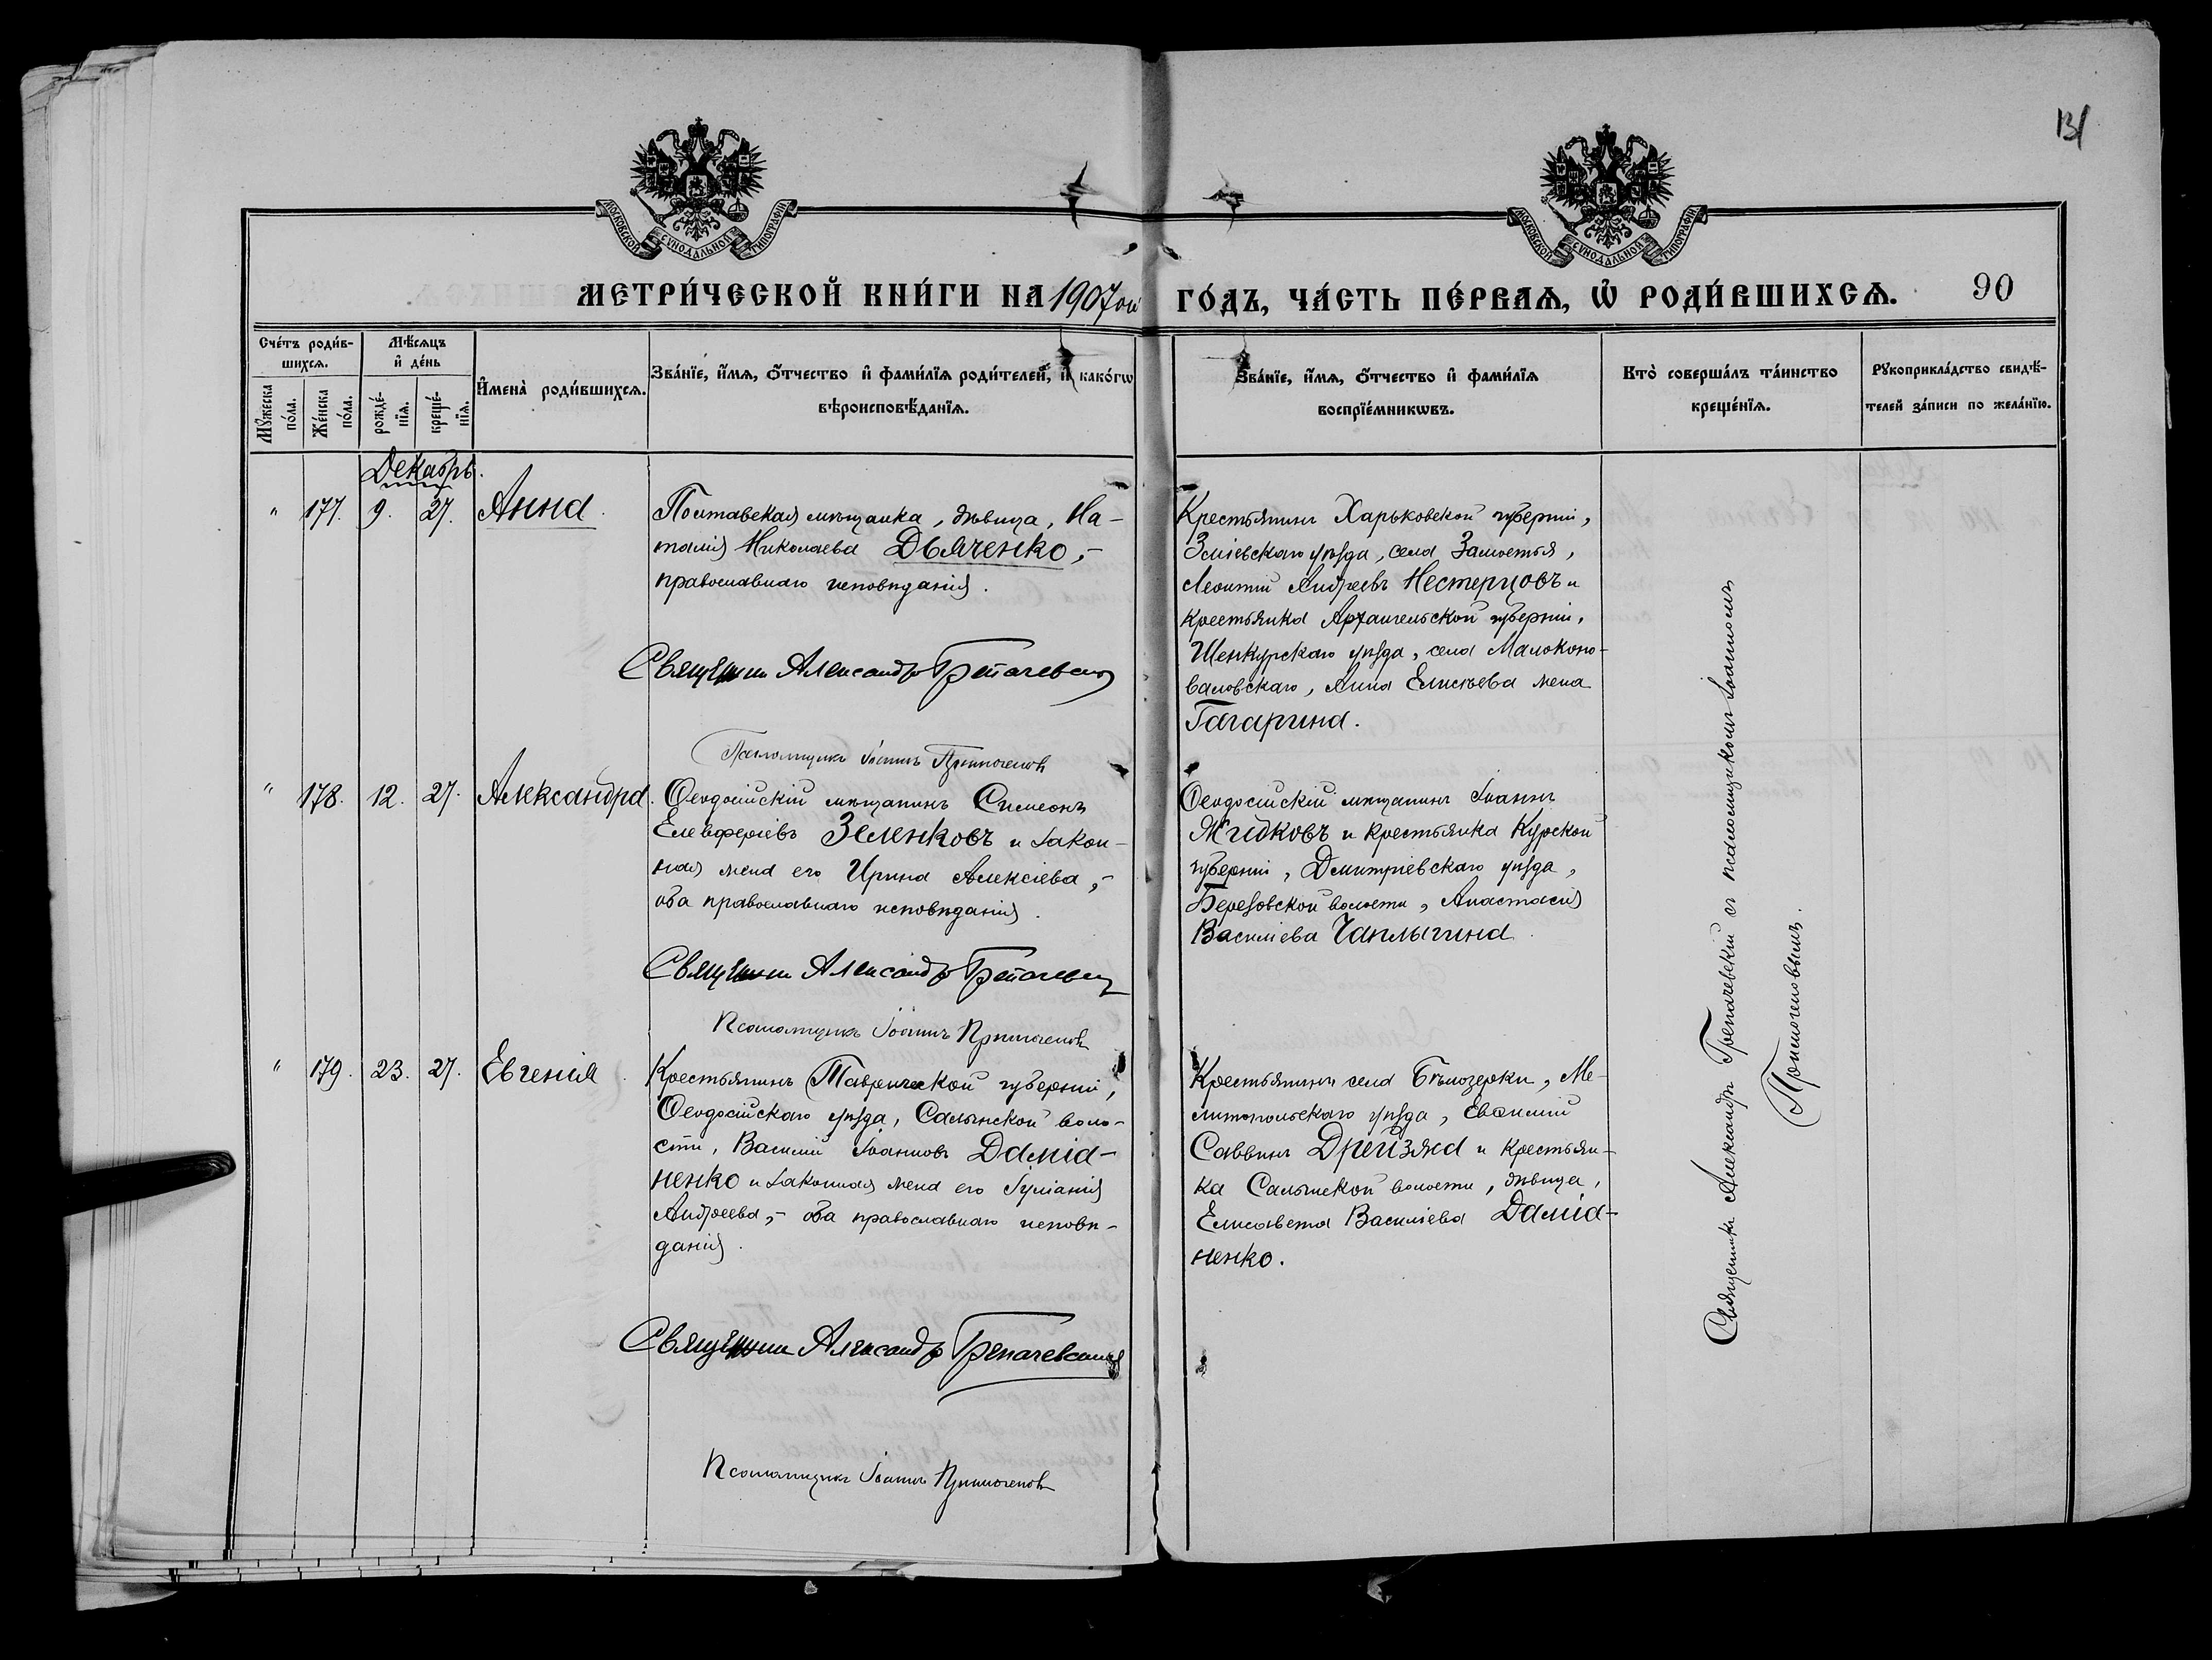 131
МОСКОВСКОЙ СѴНОДАЛЬНОЙ ТИПОГРАФІИ
МОСКОВСКОЙ СѴНОДАЛЬНОЙ ТИПОГРАФІИ
МЕТРИ́ЧЕСКОЙ КНИ́ГИ НА 1907ой ГО́ДЪ, ЧА́СТЬ ПЕ́РВАѦ, Ѡ҆ РОДИ́ВШИХСѦ. 90
Сче́тъ роди́в-
шихсѧ.
Мꙋ́жеска
по́ла.
Же́нска
по́ла.
Мѣ́сѧцъ
и҆ де́нь
рожде́-
нїѧ.
креще́-
нїѧ.
И҆мена̀ роди́вшихсѧ.
Зва́нїе, и҆́мѧ, ѻ҆́тчество и҆ фами́лїѧ роди́телей, и҆ како́гѡ
вѣроисповѣ́данїѧ.
Зва́нїе, и҆́мѧ, ѻ҆́тчество и҆ фами́лїѧ
воспрїе́мникѡвъ.
Кто̀ соверша́лъ та́инство
креще́нїѧ.
Рꙋкоприкла́дство свидѣ́-
телей за́писи по жела́нїю.
Декабрь.
" 177. 9. 27. Анна.
Полтавская мѣщанка, дѣвица, На-
талія Николаева Дьяченко,-
православнаго исповѣданія.
Священник Александръ Грепачевскій
Псаломщикъ Іоаннъ Примогеновъ
Крестьянинъ Харьковской губерніи,
Зміевскаго уѣзда, села Замостья,
Леонтій Андреевъ Нестерцовъ и
крестьянка Архангельской губерніи,
Шенкурскаго уѣзда, села Малоконо-
валовскаго, Анна Елисѣева жена
Гагарина.
" 178. 12. 27. Александра.
Ѳеодосійскій мѣщанинъ Симеонъ
Елевферіевъ Зеленковъ и закон-
ная жена его Ирина Алексіева,-
оба православнаго исповѣданія.
Священник Александръ Грепачевскій
Псаломщикъ Іоаннъ Примогеновъ
Ѳеодосійскій мѣщанинъ Іоаннъ
Жидковъ и крестьянка Курской
губерніи, Дмитріевскаго уѣзда,
Березовской волости, Анастасія
Василіева Чаплыгина.
" 179. 23. 27. Евгенія.
Крестьянинъ Таврической губерніи,
Ѳеодосійскаго уѣзда, Салынской воло-
сти, Василій Іоанновъ Даміа-
ненко и законная жена его Іуліанія
Андреева,- оба православнаго исповѣ-
данія.
Священник Александръ Грепачевскій
Псаломщикъ Іоаннъ Примогеновъ
Крестьянинъ села Бѣлозерки, Ме-
литопольскаго уѣзда, Евѳимій
Саввинъ Дрейзжа и крестьян-
ка Салынской волости, дѣвица,
Елисавета Василіева Даміа-
ненко.
Священникъ Александръ Грепачевскій съ псаломщикомъ Іоанномъ
Примогеновымъ.